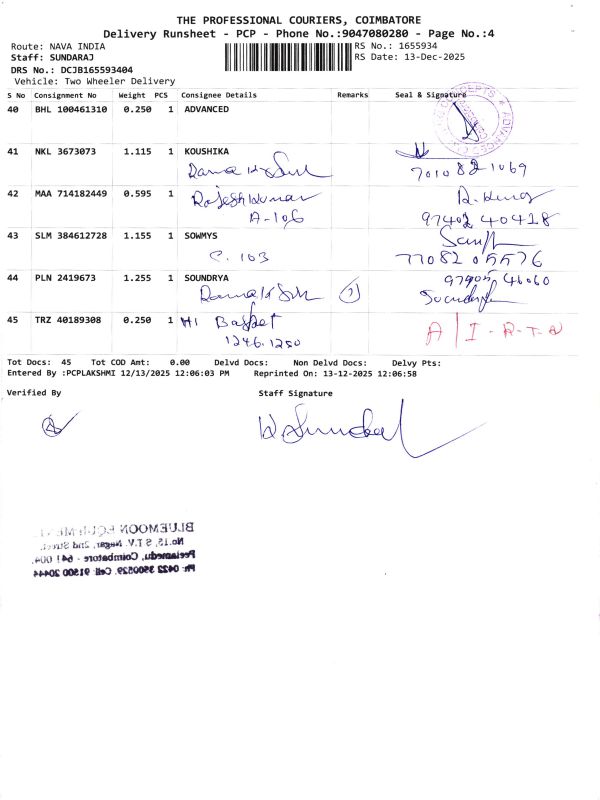 THE PROFESSIONAL COURIERS, COIMBATORE
Delivery Runsheet - PCP - Phone No.:9047080280 - Page No.:4
Route: NAVA INDIA
RS No.: 1655934
Staff: SUNDARAJ
RS Date: 13-Dec-2025
DRS No.: DCJB165593404
Vehicle: Two Wheeler Delivery
S No Consignment No Weight PCS Consignee Details Remarks Seal & Signature
40 BHL 100461310 0.250 1 ADVANCED
41 NKL 3673073 1.115 1 KOUSHIKA
7010821069
42 MAA 714182449 0.595 1 Rajesh Kumar
A-106
97402 40428
43 SLM 384612728 1.155 1 SOWMYS
C. 103
77082 05576
44 PLN 2419673 1.255 1 SOUNDRYA
97905 46060
45 TRZ 40189308 0.250 1 HI Basket
1246.1250
A/I-R-T-N
Tot Docs: 45 Tot COD Amt: 0.00 Delvd Docs: Non Delvd Docs: Delvy Pts:
Entered By :PCPLAKSHMI 12/13/2025 12:06:03 PM Reprinted On: 13-12-2025 12:06:58
Verified By Staff Signature
BLUEMOON
No.15, S.T.V. Nagar, 2nd Street,
Peelamedu, Coimbatore - 641 004.
Ph: 0422 3500529. Cell: 91500 20444